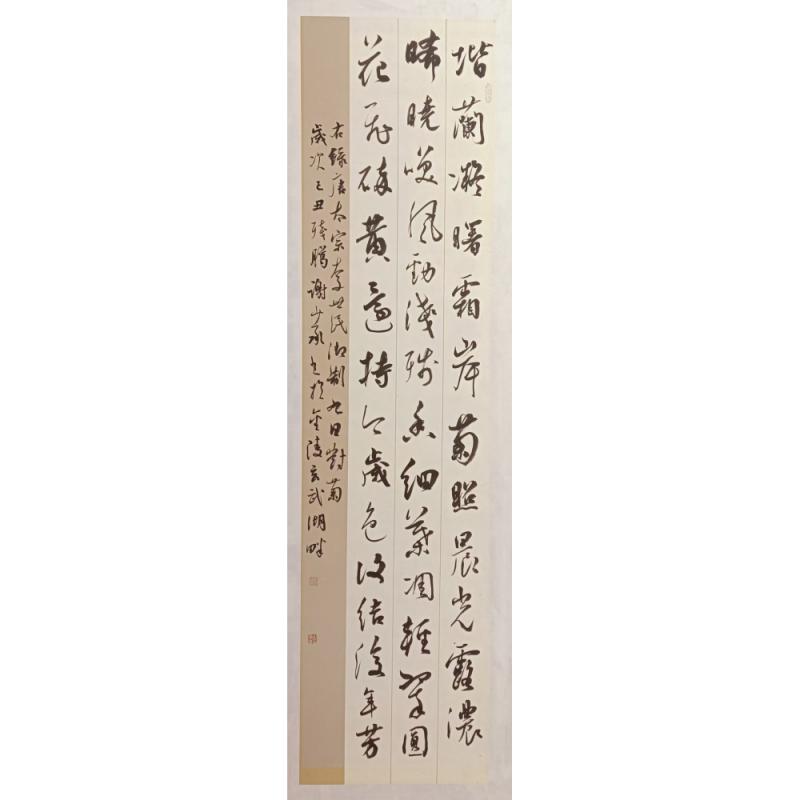 堦蘭凝曙霜岸菊照晨光露濃
晞曉咲風勁淺殘香細葉凋輕翠圓
花飛碎黃還持今歲色復結後年芳
右錄唐太宗李世民御制九日對菊
歲次己丑殘臘謝少承書於金陵玄武湖畔